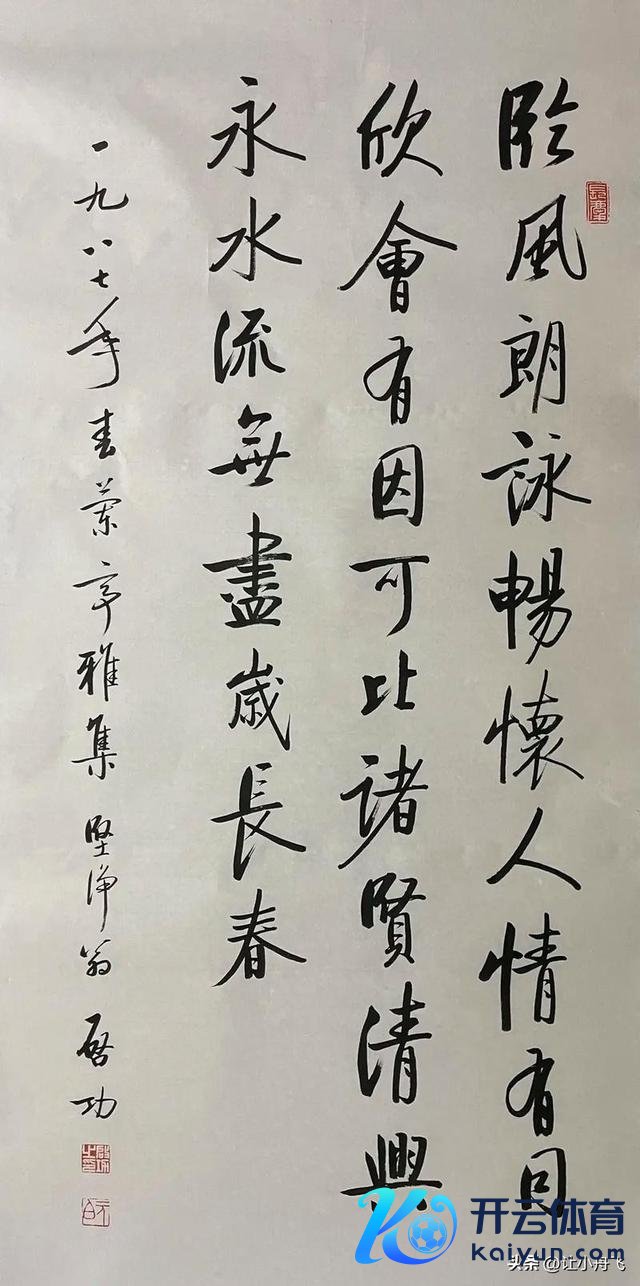 臨風朗詠暢懷人情有同
欣會有因可比諸賢清興
永水流無盡歲長春
一九八七年春蘭亭雅集 堅淨翁 啓功
开云体育
kaiyun.com
头条